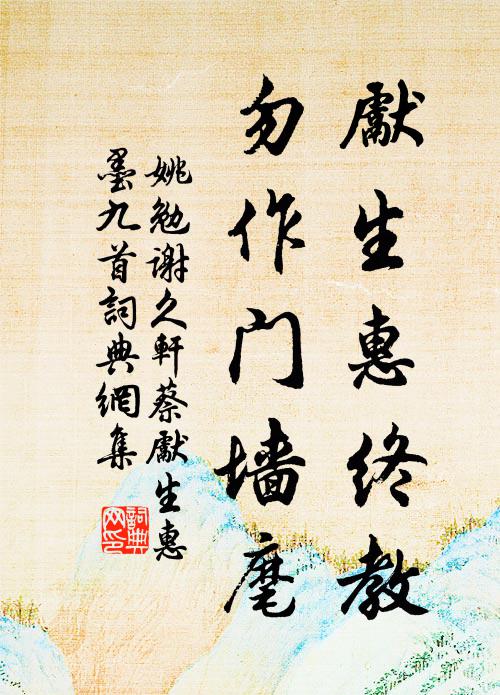 獻生惠终教
勿作门墙麾
姚勉谢久軒蔡獻生惠
墨九首詞典網集
詞典
网